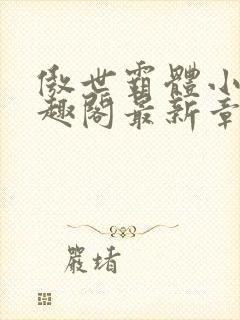 傲世霸體小
趣閣最新章
嚴堵